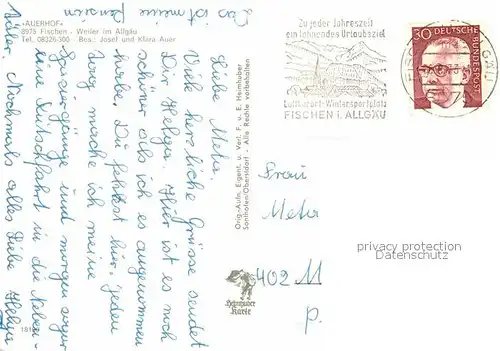 Das ist meine Pension
»AUERHOF«
8975 Fischen - Weiler im Allgäu
Tel. 08326-300 Bes.: Josef und Klara Auer
Liebe Meta.
Viele herzliche Grüsse sendet
Dir Helga. Hier ist es noch
schöner als ich es angenommen
habe. Du fehlst hier. jeden
Tag mache ich meine
Spaziergänge und morgen sogar
eine Kutschfahrt in die Neben-
täler. Nochmals alles Liebe Helga
Orig.-Aufn. Eigent. u. Verl. F. u. E. Heimhuber
Sonthofen/Oberstdorf - Alle Rechte vorbehalten
Zu jeder Jahreszeit
ein lohnendes Urlaubsziel
Luftkurort-Wintersportplatz
FISCHEN I. ALLGÄU
30
DEUTSCHE BUNDESPOST
Frau
Meta
402 M
p.
privacy protection
Datenschutz
Heimhuber
Karte